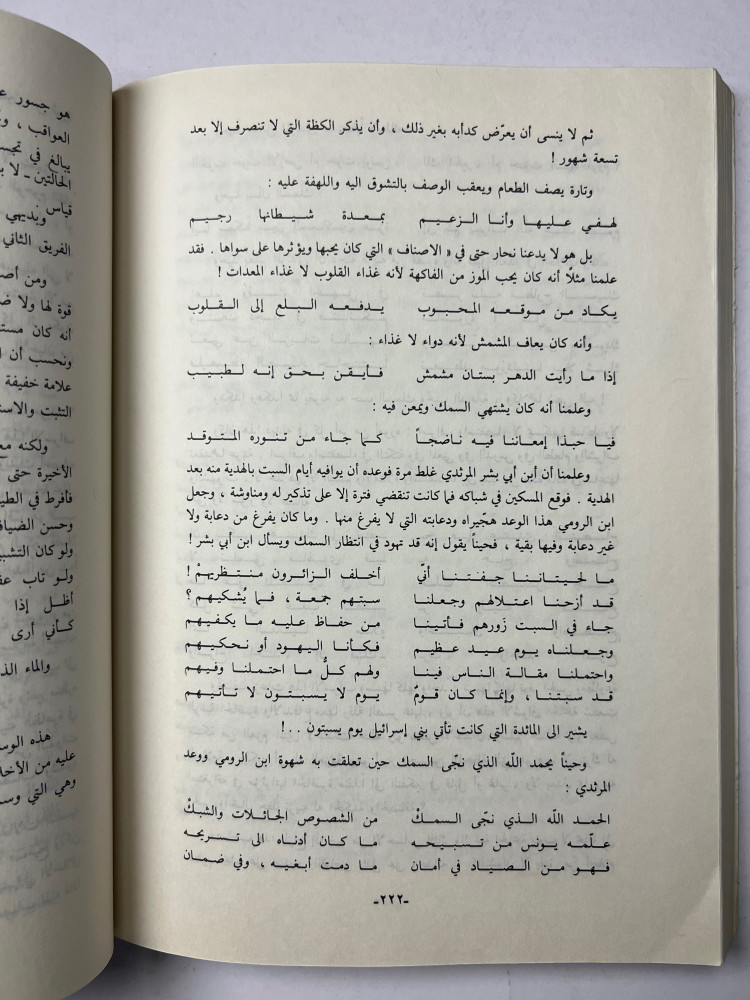 ثم لا ينسى أن يعرّض كدأبه بغير ذلك ، وأن يذكر الكظة التي لا تنصرف إلا بعد
تسعة شهور !
وتارة يصف الطعام ويعقب الوصف بالتشوق اليه واللهفة عليه :
لهفي عليها وأنا الزعيم بمعدة شيطانها رجيم
بل هو لا يدعنا نحار حتى في « الاصناف » التي كان يحبها ويؤثرها على سواها . فقد
علمنا مثلاً أنه كان يحب الموز من الفاكهة لأنه غذاء القلوب لا غذاء المعدات !
يكاد من موقعه المحبوب يدفعه البلع إلى القلوب
وأنه كان يعاف المشمش لأنه دواء لا غذاء :
إذا ما رأيت الدهر بستان مشمش فأيقن بحق إنه لطبيب
وعلمنا أنه كان يشتهي السمك ويمعن فيه :
فيا حبذا إمعاننا فيه ناضجاً كما جاء من تنوره المتوقد
وعلمنا أن ابن أبي بشر المرثدي غلط مرة فوعده أن يوافيه أيام السبت بالهدية منه بعد
الهدية . فوقع المسكين في شباكه فما كانت تنقضي فترة إلا على تذكير له ومناوشة ، وجعل
ابن الرومي هذا الوعد هجّيراه ودعابته التي لا يفرغ منها . وما كان يفرغ من دعابة ولا
غير دعابة وفيها بقية ، فحيناً يقول إنه قد تهود في انتظار السمك ويسأل ابن أبي بشر !
ما لحيتاننا جفتنا أنّي أخلف الزائرون منتظريهمْ !
قد أزحنا اعتلالهم وجعلنا سبتهم جمعة ، فما يُشكيهم ؟
جاء في السبت زَورهم فأتينا من حفاظ عليه ما يكفيهم
وجعلناه يوم عيد عظيم فكأنا اليهود أو نحكيهم
واحتملنا مقالة الناس فينا ولهم كلُّ ما احتملنا وفيهم
قد سبتنا ، وإنما كان قومٌ يوم لا يسبتون لا تأتيهم
يشير الى المائدة التي كانت تأتي بني إسرائيل يوم يسبتون . .!
وحيناً يحمد اللّه الذي نجّى السمك حين تعلقت به شهوة ابن الرومي ووعد
المرثدي :
الحمد اللّه الذي نجّى السمكْ من الشصوص الجائلات والشبكْ
علّمه يونس من تسبيحه ما كان أدناه الى تسريحه
فهو من الصياد في أمان ما دمت أبغيه ، وفي ضمان
-٢٢٢-
هو جسور
العواقب ،
يبالغ في
الحالتين - لا
قياس
وبديهي
الفريق الثاني
ومن
قوة لها ولا
أنه كان
ونحسب أن
علامة خفيفة
التثبت
ولكنه
الأخيرة حتى
فأفرط في
وحسن
ولو كان
ولو تاب
أظل إذا
كأني أرى
والماء
هذه
عليه من
وهي التي